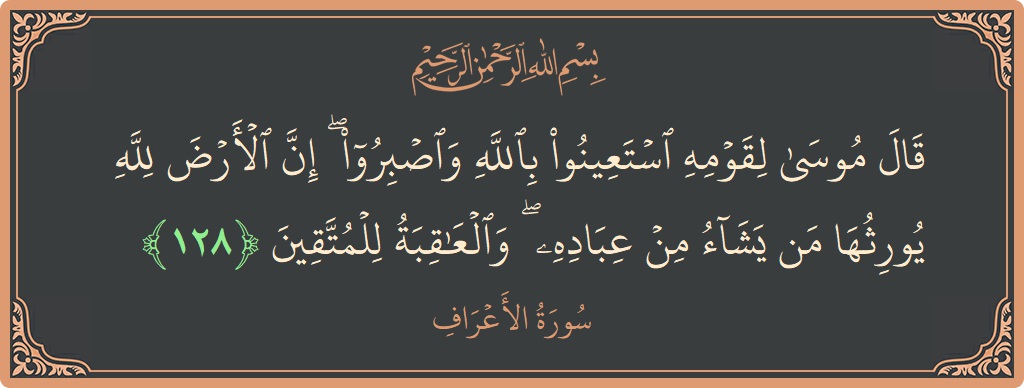 بِسْمِ اللَّهِ الرَّحْمَٰنِ الرَّحِيمِ
قَالَ مُوسَىٰ لِقَوْمِهِ ٱسْتَعِينُوا۟ بِٱللَّهِ وَٱصْبِرُوٓا۟ ۖ إِنَّ ٱلْأَرْضَ لِلَّهِ
يُورِثُهَا مَن يَشَآءُ مِنْ عِبَادِهِۦ ۖ وَٱلْعَـٰقِبَةُ لِلْمُتَّقِينَ ﴿١٢٨﴾
سُورَةُ الأَعْرَافِ